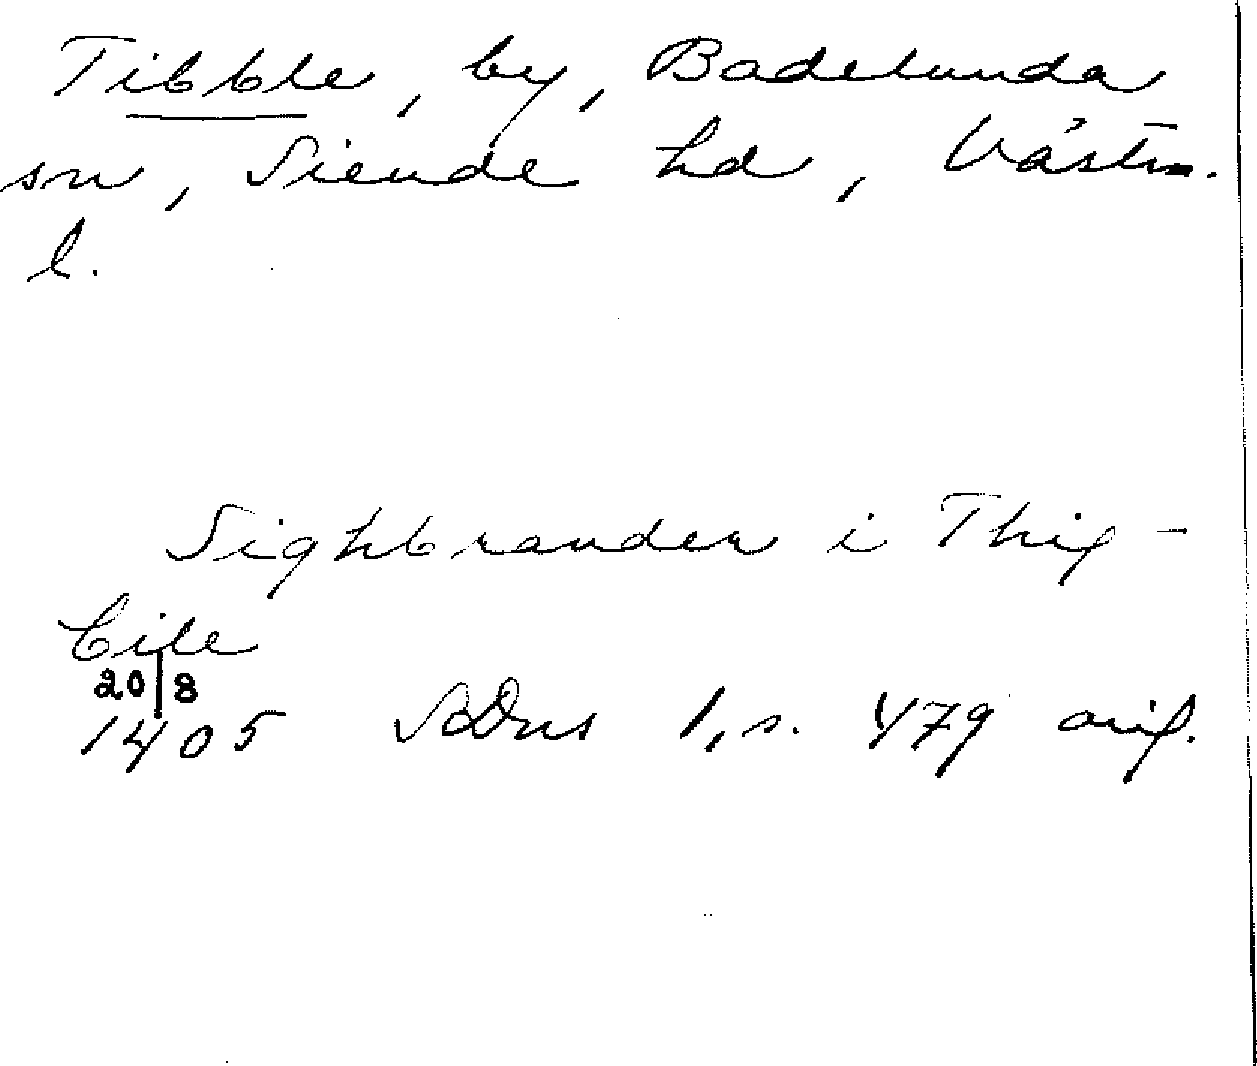 Tibble, by, Badelunda
sn, Siende hd, Västm.
l.
Sighbrander i Thig-
bile
20/8
1405 SDns 1, s. 479 orig.